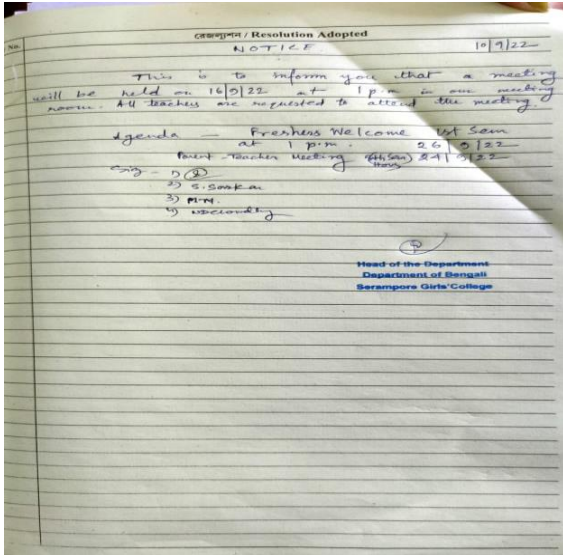 No.
রেজল্যুশন / Resolution Adopted
NOTICE 10/9/22
This is to inform you that a meeting
will be held on 16/9/22 at 1 p.m in our meeting
room. All teachers are requested to attend the meeting.
Agenda — Freshers Welcome 1st Sem
at 1 p.m. 26/9/22
Parent-Teacher Meeting 24/9/22
1)
2) S. Sarkar
3) M.N.
4)
Head of the Department
Department of Bengali
Serampore Girls' College